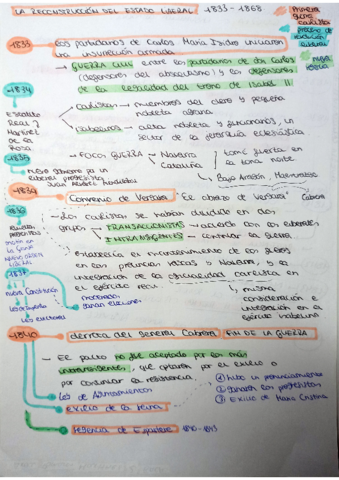 LA RECONSTRUCCIÓN DEL ESTADO LIBERAL 1833 - 1868
Primera guerra carlista
proceso de revolución liberal
-1833
Los partidarios de Carlos María Isidro iniciaron
la insurrección armada
GUERRA CIVIL entre los partidarios de don Carlos
(defensores del absolutismo) y los defensores
de la legalidad del trono de Isabel II
-1834
Estatuto
Real
Martínez
de la
Rosa
carlistas - miembros del clero y pequeña
nobleza agraria
isabelinos - alta nobleza y funcionarios, un
sector de la jerarquía eclesiástica
-1835
nuevo gobierno
liberal progresista
Juan Álvarez Mendizábal
FOCOS GUERRA
Navarra
Cataluña
tomó fuerza en
la zona norte
Bajo Aragón, Maestrazgo
Cabrera
-1839
Convenio de Vergara "El abrazo de Vergara"
Los carlistas se habían dividido en dos
grupos
TRANSACCIONISTAS - acuerdo con los liberales
INTRANSIGENTES - continuar la guerra
establecía el mantenimiento de los fueros
en las provincias vascas y Navarra, y la
integración de la oficialidad carlista en
el ejército real.
-1837
nueva Constitución
moderados
ganan elecciones
misma
consideración e
integración en el
ejército isabelino
-1840
derrota del General Cabrera FIN DE LA GUERRA
- El pacto no fue aceptado por los más
intransigentes, que optaron por el exilio o
por continuar la resistencia.
Ley de Ayuntamientos
exilio de la reina
① Hubo un pronunciamiento
② ganaron los progresistas
③ Exilio de María Cristina
Regencia de Espartero 1840-1843